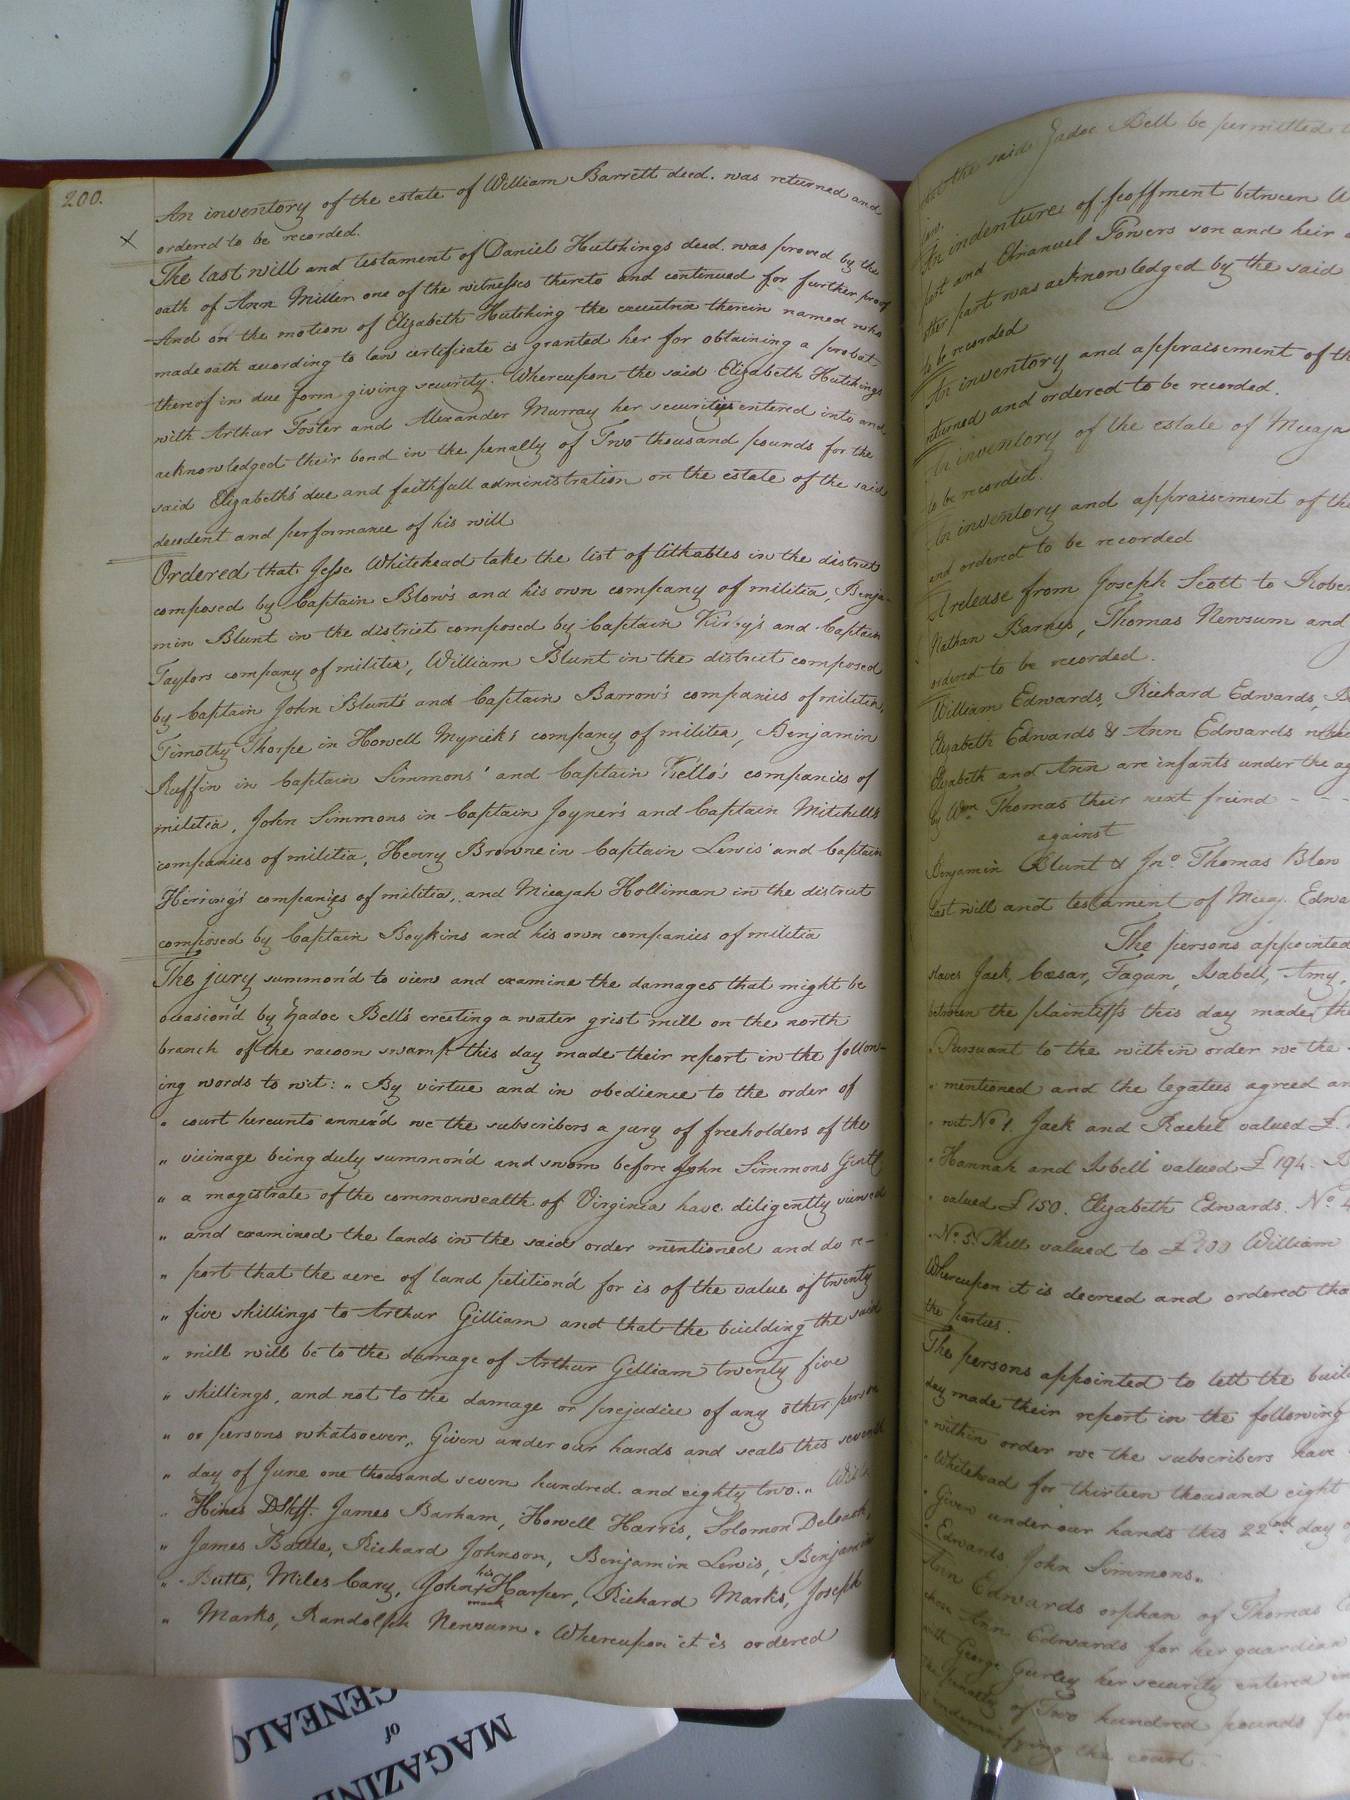 200.
An inventory of the estate of William Barrett decd. was returned and
ordered to be recorded.
The last will and testament of Daniel Hutchings decd. was proved by the
oath of Ann Miller one of the witnesses thereto and continued for further proof
And on the motion of Elizabeth Hutching the executrix therein named who
made oath according to law certificate is granted her for obtaining a probat
thereof in due form giving security. Whereupon the said Elizabeth Hutchings
with Arthur Foster and Alexander Murray her securitys entered into and
acknowledged their bond in the penalty of Two thousand pounds for the
said Elizabeth's due and faithfull administration on the estate of the said
decedent and performance of his will
Ordered that Jesse Whitehead take the list of tithables in the district
composed by Captain Blow's and his own company of militia, Benja-
min Blunt in the district composed by Captain Kirby's and Captain
Taylors company of militia, William Blunt in the district composed
by Captain John Blunt's and Captain Barrow's companies of militia,
Timothy Thorpe in Howell Myrick's company of militia, Benjamin
Ruffin in Captain Simmons' and Captain Kello's companies of
militia, John Simmons in Captain Joyner's and Captain Mitchells
companies of militia, Henry Browne in Captain Lewis' and Captain
Herring's companies of militia, and Micajah Holliman in the district
composed by Captain Boykins and his own companies of militia
The jury summon'd to view and examine the damages that might be
occasion'd by Zadoc Bell's erecting a water grist mill on the north
branch of the racoon swamp this day made their report in the follow-
ing words to wit: " By virtue and in obedience to the order of
" court hereunto annex'd we the subscribers a jury of freeholders of the
" vicinage being duly summon'd and sworn before John Simmons Gentl
" a magistrate of the commonwealth of Virginia have diligently viewed
" and examined the lands in the said order mentioned and do re-
" port that the acre of land petition'd for is of the value of twenty
" five shillings to Arthur Gilliam and that the building the said
" mill will be to the damage of Arthur Gilliam twenty five
" shillings, and not to the damage or prejudice of any other person
" or persons whatsoever. Given under our hands and seals this seventh
" day of June one thousand seven hundred and eighty two."
" Hines DShff. James Barham, Howell Harris, Solomon Deloach,
" James Battle, Richard Johnson, Benjamin Lewis, Benjamin
" Butts, Miles Cary, John his mark Harper, Richard Marks, Joseph
" Marks, Randolph Newsum. Whereupon it is ordered
the said Zadoc Bell be permitted
law.
An indenture of feoffment between
part and Emanuel Powers son and heir
other part was acknowledged by the said
to be recorded
An inventory and appraisement of the
returned and ordered to be recorded.
An inventory of the estate of Micaja
to be recorded.
An inventory and appraisement of the
and ordered to be recorded
A release from Joseph Scott to
Nathan Barnes, Thomas Newsum and
ordered to be recorded.
William Edwards, Richard Edwards,
Elizabeth Edwards & Ann Edwards
Elizabeth and Ann are infants under the
by Wm. Thomas their next friend - - -
against
Benjamin Blunt & Jno. Thomas Blow
last will and testament of Micaj.
The persons appointed
slaves Jack, Cæsar, Fagan, Isabell, Amy,
between the plaintiffs this day made
" Pursuant to the within order we the
" mentioned and the legatees agreed
" wit No 1. Jack and Rachel valued £
" Hannah and Isbell valued £194.
" valued £150. Elizabeth Edwards. No
" No 5. Phill valued to £ William
Whereupon it is decreed and ordered
the parties.
The persons appointed to lett the
day made their report in the following
" within order we the subscribers have
" Whitehead for thirteen thousand eight
" Given under our hands this 22nd day
" Edwards. John Simmons.
Ann Edwards orphan of Thomas
chose Ann Edwards for her guardian
with George Gurley her security entered
the penalty of Two hundred pounds
indemnifying the court.
MAGAZINE
of
GENEALO